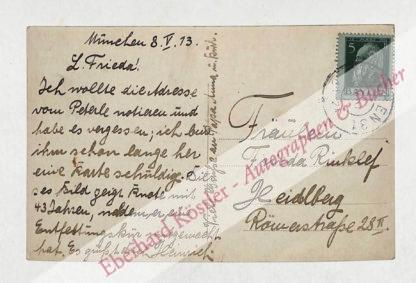 München 8. V. 13.
L. Frieda!
Ich wollte die Adresse
vom Peterle notieren und
habe es vergessen; ich bin
ihm schon lange her
eine Karte schuldig. Die-
ses Bild zeigt Knote mit
43 Jahren, nachdem er eine
Entfettungskur
hat. Es grüßt Heinrich
Fräulein
Frieda
Heidlberg
Römerstraße 28 II.
5
Eberhard Köstler - Autographen & Bücher